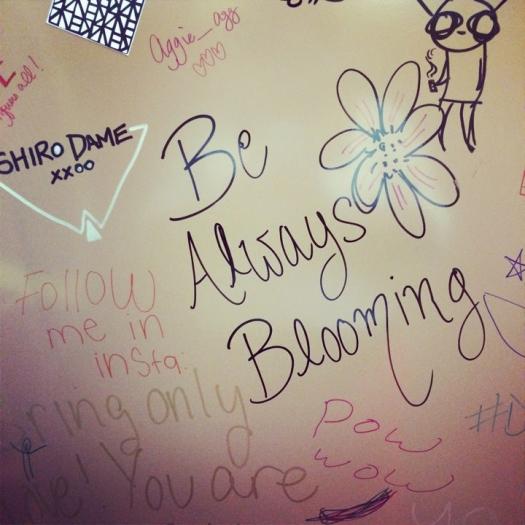 Aggie_agg
SHIRO DAME
xxoo
Be
Always
Blooming
Follow
me in
insta:
ring only
You are
Pow
wow